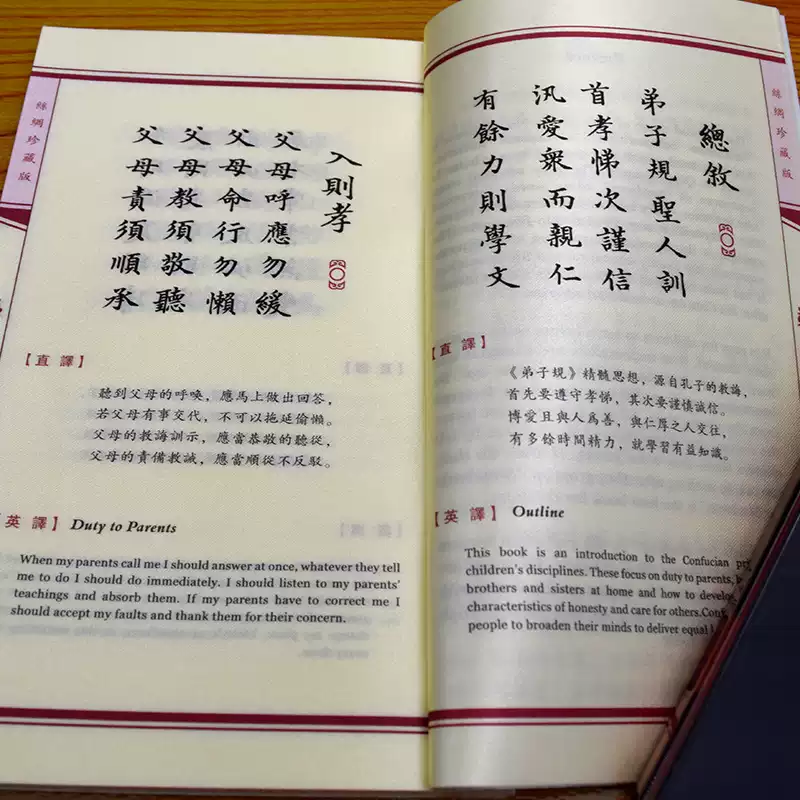 絲綢珍藏版
總敘
弟子規聖人訓
首孝悌次謹信
汎愛衆而親仁
有餘力則學文
【直譯】
《弟子規》精髓思想，源自孔子的教誨，
首先要遵守孝悌，其次要謹慎誠信。
博愛且與人為善，與仁厚之人交往，
有多餘時間精力，就學習有益知識。
【英譯】 Outline
This book is an introduction to the Confucian
children's disciplines. These focus on duty to parents,
brothers and sisters at home and how to develop
characteristics of honesty and care for others.
people to broaden their minds to deliver equal
絲綢珍藏版
入則孝
父母呼應勿緩
父母命行勿懶
父母教須敬聽
父母責須順承
【直譯】
聽到父母的呼喚，應馬上做出回答，
若父母有事交代，不可以拖延偷懶。
父母的教誨訓示，應當恭敬的聽從，
父母的責備教誡，應當順從不反駁。
【英譯】 Duty to Parents
When my parents call me I should answer at once, whatever they tell
me to do I should do immediately. I should listen to my parents'
teachings and absorb them. If my parents have to correct me I
should accept my faults and thank them for their concern.